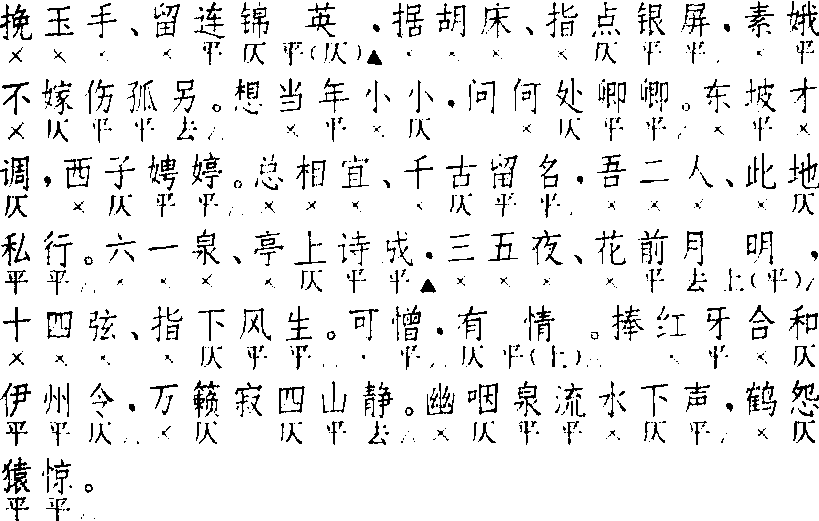 挽玉手、留连锦英,据胡床、指点银屏,素娥
× × × × 平 仄 平(仄)▲ × × × × 仄 平 平 × 平
不嫁伤孤另。想当年小小,问何处卿卿。东坡才
× 仄 平 平 去 × 平 × 仄 × 仄 平 平 × 平 ×
调,西子娉婷。总相宜、千古留名,吾二人、此地
仄 × 仄 平 平 × × × × 仄 平 平 × × × × 仄
私行。六一泉、亭上诗成,三五夜、花前月明,
平 平 × × × × 仄 平 平 ▲ × × × × 平 去 上(平)
十四弦、指下风生。可憎,有情。捧红牙合和
× × × × 仄 平 平 · 平 仄 平(上) × 平 × 仄
伊州令,万籁寂四山静。幽咽泉流水下声,鹤怨
平 平 仄 × 仄 仄 平 去 × 仄 平 平 仄 仄 平 × 仄
猿惊。
平 平